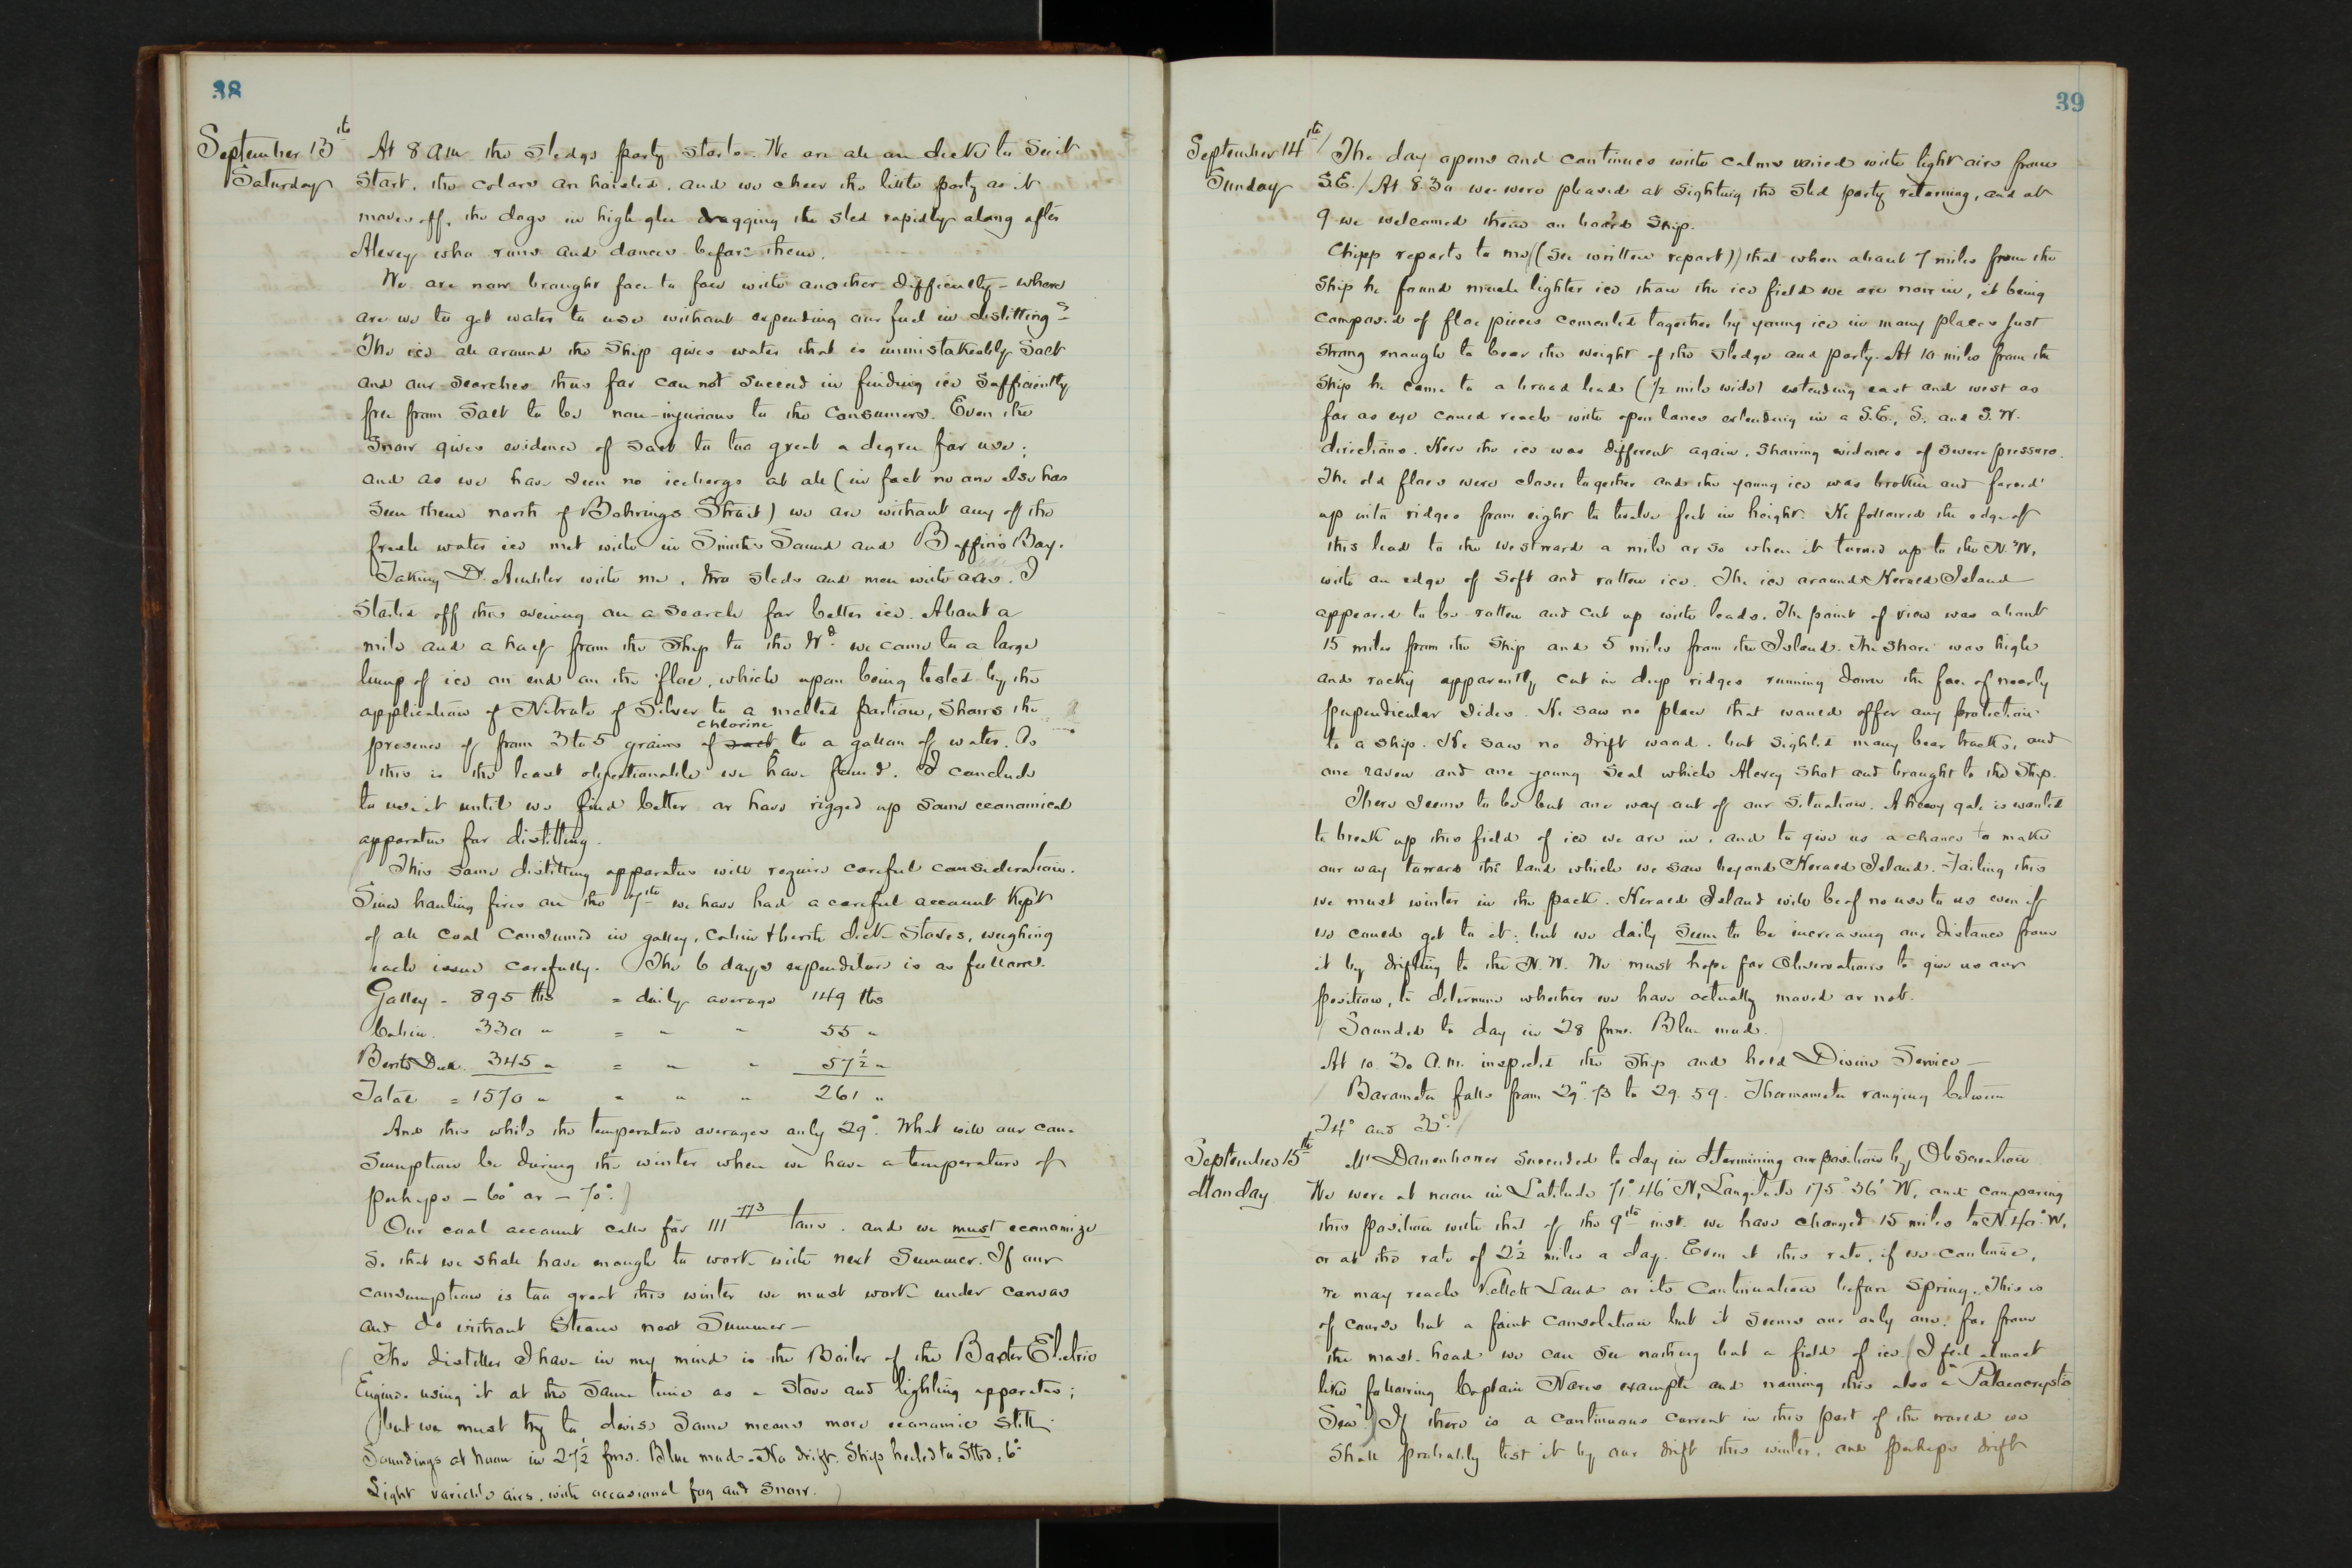 38
September 13th
Saturday
At 8 a m the sledge party starts. We are all on deck to see it
start, the colors are hoisted, and we cheer the little party as it
moves off, the dogs in high glee dragging the sled rapidly along after
Alexey who runs and dances before them.
We are now brought face to face with another difficulty - where
are we to get water to use without expending our fuel in distilling?
The ice all around the ship gives water that is unmistakeably salt
and our searches thus far can not succeed in finding ice sufficiently
free from salt to be non-injurious to the consumers. Even the
snow gives evidence of salt to too great a degree for use;
and as we have seen no icebergs at all (in fact no one else has
seen them north of Behrings Strait) we are without any of the
fresh water ice met with in Smith's Sound and Baffin's Bay.
Taking Dr. Ambler with me, two sleds and men with axes, I
started off this evening on a search for better ice. About a
mile and a half from the ship to the Wd. we came to a large
lump of ice on end on the floe, which upon being tested by the
application of Nitrate of Silver to a melted portion, shows the
presence of from 3 to 5 grains of salt chlorine to a gallon of water. As
this is the least objectionable we have found, I conclude
to use it until we find better or have rigged up some economical
apparatus for distilling.
(This same distilling apparatus will require careful consideration.
Since hauling fires on the 7th we have had a careful account kept
of all coal consumed in galley, cabin & berth deck stoves, weighing
each issue carefully. The 6 days expenditure is as follows.
Galley - 895 lbs = daily average 149 lbs
Cabin. 330 " = " " 55 "
Berth Deck. 345 " = " " 57½ "
Total = 1570 " " " " 261 "
And this while the temperature averages only 29°. What will our con-
sumption be during the winter when we have a temperature of
perhaps - 60° or - 70°.)
Our coal account calls for 111 773 tons, and we must economize
so that we shall have enough to work with next Summer. If our
consumption is too great this winter we must work under canvas
and do without steam next Summer -
(The distiller I have in my mind is the Boiler of the Baxter Electric
Engine, using it at the same time as a stove and lighting apparatus;
but we must try to devise some means more economic still.
Soundings at noon in 27½ fms. Blue mud. No drift. Ship heeled to Stbd. 6°
Light variable airs, with occasional fog and snow. )
39
September 14th
Sunday
/ The day opens and continues with calms varied with light airs from
S.E. / At 8.30 we were pleased at sighting the sled party returning, and at
9 we welcomed them on board ship.
Chipp reports to me ((see written report)) that when about 7 miles from the
ship he found much lighter ice than the ice field we are now in, it being
composed of floe pieces cemented together by young ice in many places just
strong enough to bear the weight of the sledge and party. At 10 miles from the
ship he came to a broad lead (½ mile wide) extending east and west as
far as eye could reach with open lanes extending in a S.E., S. and S.W.
directions. Here the ice was different again, showing evidences of severe pressure.
The old floes were closer together and the young ice was broken and forced
up into ridges from eight to twelve feet in height. He followed the edge of
this lead to the westward a mile or so when it turned up to the N.W.
with an edge of soft and rotten ice. The ice around Herald Island
appeared to be rotten and cut up with leads. The point of view was about
15 miles from the ship and 5 miles from the Island. The shore was high
and rocky apparently cut in deep ridges running down the face of nearly
perpendicular sides. He saw no place that would offer any protection
to a ship. He saw no drift wood, but sighted many bear tracks, and
one raven and one young seal which Alexey shot and brought to the ship.
There seems to be but one way out of our situation. A heavy gale is wanted
to break up this field of ice we are in, and to give us a chance to make
our way toward the land which we saw beyond Herald Island. Failing this
we must winter in the pack. Herald Island will be of no use to us even if
we could get to it; but we daily seem to be increasing our distance from
it by drifting to the N.W. We must hope for Observations to give us our
position, to determine whether we have actually moved or not.
/ Sounded to day in 28 fms. Blue mud.
At 10.30 a.m. inspected the ship and held Divine Service -
/ Barometer falls from 29".73 to 29.59. Thermometer ranging between
24° and 32°. /
September 15th
Monday
Mr Danenhower succeeded to day in determining our position by Observation.
We were at noon in Latitude 71° 46' N, Longitude 175° 36' W, and comparing
this position with that of the 9th inst. we have changed 15 miles to N 40° W,
or at the rate of 2½ miles a day. Even at this rate, if we continue,
we may reach Kellett Land or its Continuation before Spring. This is
of course but a faint consolation but it seems our only one; for from
the mast-head we can see nothing but a field of ice. (I feel almost
like following Captain Nares example and naming this also a "Palaeocrystic
Sea".) If there is a continuous current in this part of the world we
shall probably test it by our drift this winter, and perhaps drift